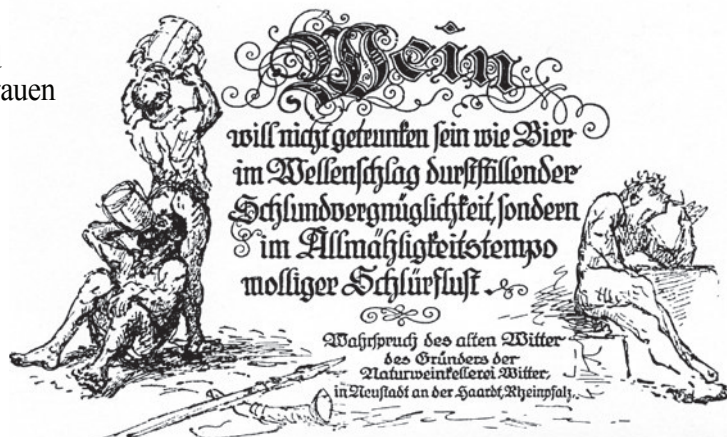 auen
Wein
will nicht getrunken sein wie Bier
im Wellenschlag durststillender
Schlundvergnüglichkeit, sondern
im Allmähligkeitstempo
molliger Schlürflust.
Wahrspruch des alten Witter
des Gründers der
Naturweinkellerei Witter,
in Neustadt an der Haardt, Rheinpfalz.